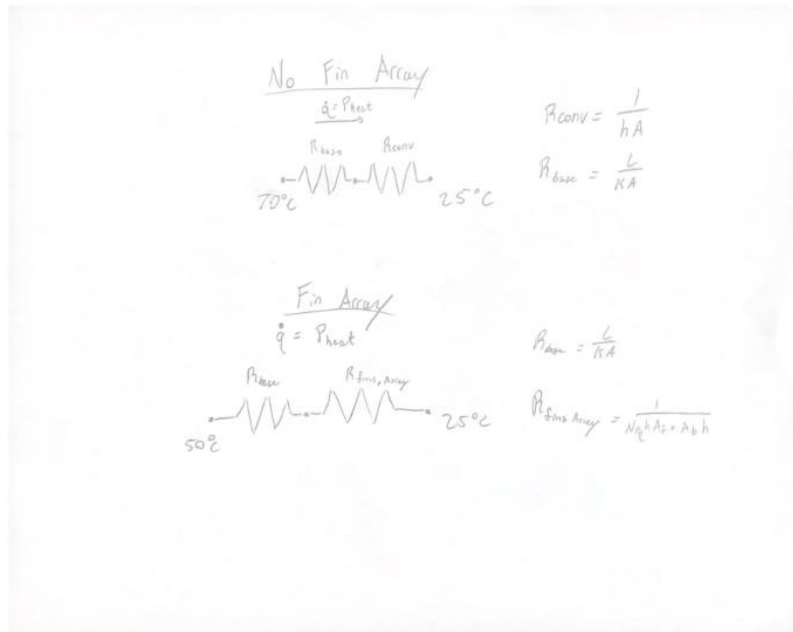 No Fin Array
q̇ = Pheat
Rbase Rconv
70°C 25°C
Rconv = 1/hA
Rbase = L/KA
Fin Array
q̇ = Pheat
Rbase Rfins, Array
50°C 25°C
Rbase = L/KA
Rfins Array = 1/(NηhAf + Abh)